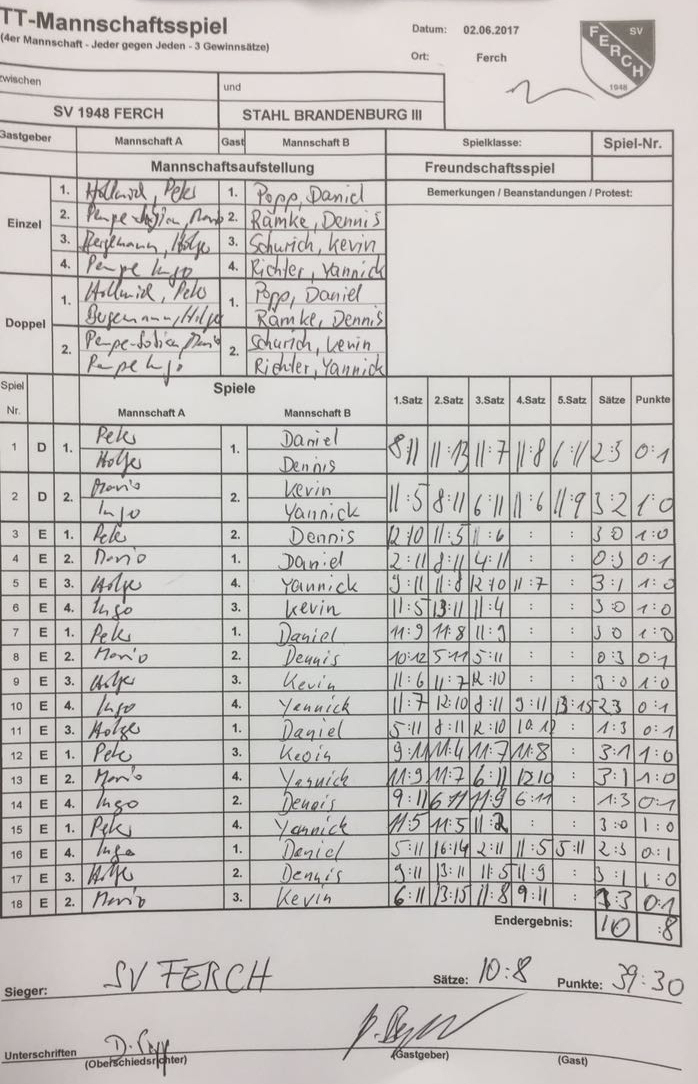 TT-Mannschaftsspiel
(4er Mannschaft - Jeder gegen Jeden - 3 Gewinnsätze)
Datum: 02.06.2017
Ort: Ferch
SV FERCH 1948
zwischen und
SV 1948 FERCH STAHL BRANDENBURG III
Gastgeber Mannschaft A Gast Mannschaft B Spielklasse: Spiel-Nr.
Mannschaftsaufstellung Freundschaftsspiel
Bemerkungen / Beanstandungen / Protest:
Einzel
1. Peter 1. Popp, Daniel
2. Mario 2. Rämke, Dennis
3. Holger 3. Schurich, Kevin
4. Pempe Ingo 4. Richter, Yannick
Doppel
1. Peter 1. Popp, Daniel
Holger Rämke, Dennis
2. Mario 2. Schurich, Kevin
Pempe Ingo Richter, Yannick
Spiel Nr. Spiele 1.Satz 2.Satz 3.Satz 4.Satz 5.Satz Sätze Punkte
Mannschaft A Mannschaft B
1 D 1. Peter 1. Daniel 8:11 11:13 11:7 11:8 6:11 2:3 0:1
Holger Dennis
2 D 2. Mario 2. Kevin 11:5 8:11 6:11 11:6 11:9 3:2 1:0
Ingo Yannick
3 E 1. Peter 2. Dennis 12:10 11:5 11:6 : : 3:0 1:0
4 E 2. Mario 1. Daniel 2:11 8:11 4:11 : : 0:3 0:1
5 E 3. Holger 4. Yannick 9:11 11:8 12:10 11:7 : 3:1 1:0
6 E 4. Ingo 3. Kevin 11:5 13:11 11:4 : : 3:0 1:0
7 E 1. Peter 1. Daniel 11:9 11:8 11:9 : : 3:0 1:0
8 E 2. Mario 2. Dennis 10:12 5:11 5:11 : : 0:3 0:1
9 E 3. Holger 3. Kevin 11:6 11:7 12:10 : : 3:0 1:0
10 E 4. Ingo 4. Yannick 11:7 12:10 8:11 9:11 13:15 2:3 0:1
11 E 3. Holger 1. Daniel 5:11 8:11 12:10 10:12 : 1:3 0:1
12 E 1. Peter 3. Kevin 9:11 11:4 11:7 11:8 : 3:1 1:0
13 E 2. Mario 4. Yannick 11:9 11:7 6:11 12:10 : 3:1 1:0
14 E 4. Ingo 2. Dennis 9:11 6:11 11:9 6:11 : 1:3 0:1
15 E 1. Peter 4. Yannick 11:5 11:5 11:2 : : 3:0 1:0
16 E 4. Ingo 1. Daniel 5:11 16:14 2:11 11:5 5:11 2:3 0:1
17 E 3. Holger 2. Dennis 9:11 13:11 11:5 11:9 : 3:1 1:0
18 E 2. Mario 3. Kevin 6:11 13:15 11:8 9:11 :3 0:1
Endergebnis: 10 :8
Sieger: SV FERCH Sätze: 10:8 Punkte: 39:30
Unterschriften (Oberschiedsrichter) (Gastgeber) (Gast)